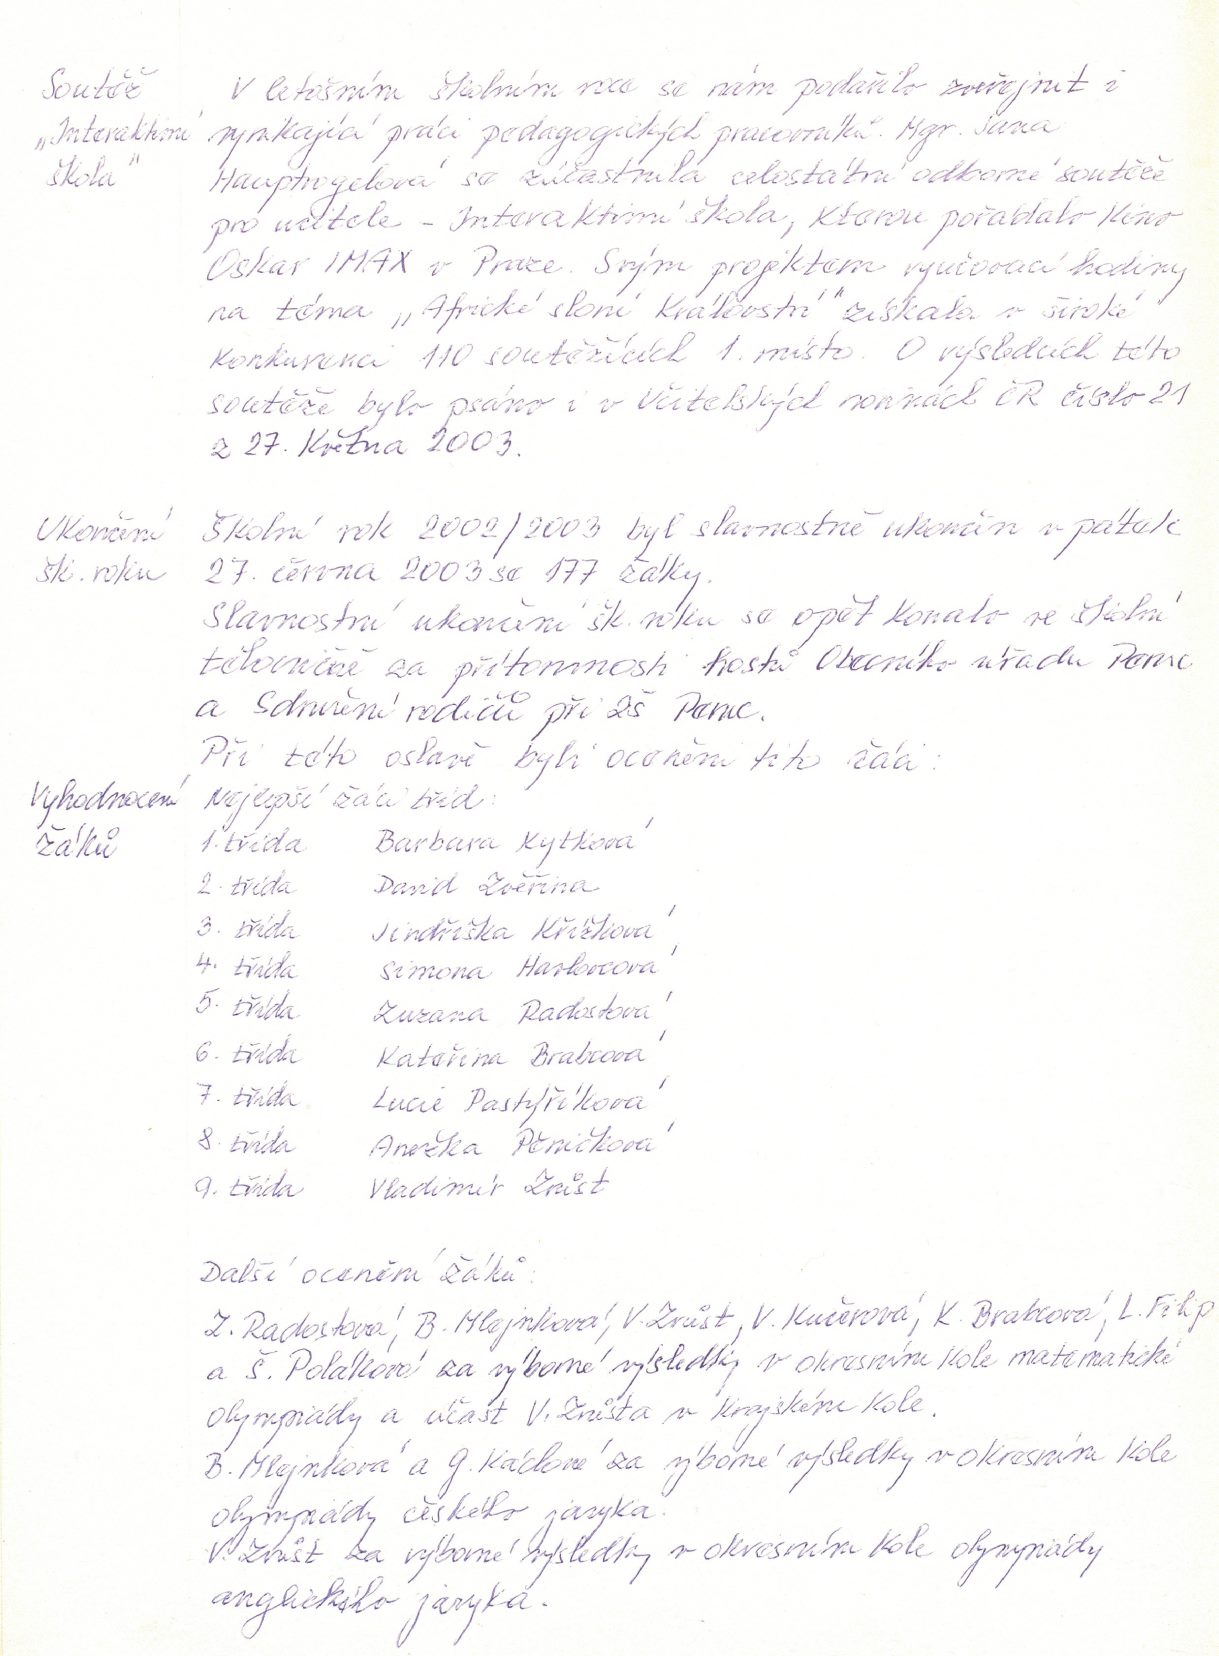 Soutěž V letošním školním roce se nám podařilo zveřejnit i
„Interaktivní vynikající práci pedagogických pracovníků. Mgr. Jana
škola" Hauptvogelová se zúčastnila celostátní odborné soutěže
pro učitele - Interaktivní škola, kterou pořádalo kino
Oskar IMAX v Praze. Svým projektem vyučovací hodiny
na téma „Africké sloní království" získala v široké
konkurenci 110 soutěžících 1. místo. O výsledcích této
soutěže bylo psáno i v Učitelských novinách ČR číslo 21
z 27. května 2003.
Ukončení Školní rok 2002/2003 byl slavnostně ukončen v pátek
šk. roku 27. června 2003 se 177 žáky.
Slavnostní ukončení šk. roku se opět konalo ve školní
tělocvičně za přítomnosti hostů Obecního úřadu Peruc
a Sdružení rodičů při ZŠ Peruc.
Při této oslavě byli oceněni tito žáci:
Vyhodnocení Nejlepší žáci tříd:
žáků 1. třída Barbara Kytková
2. třída David Zvěřina
3. třída Jindřiška Křížková
4. třída Simona Havlovcová
5. třída Zuzana Radostová
6. třída Kateřina Brabcová
7. třída Lucie Pastyříková
8. třída Anežka Pěničková
9. třída Vladimír Zrůst
Další ocenění žáků:
Z. Radostová, B. Mlejnková, V. Zrůst, V. Kučerová, K. Brabcová, L. Filip
a Š. Poláková za výborné výsledky v okresním kole matematické
olympiády a účast V. Zrůsta v krajském kole.
B. Mlejnková a G. Káclové za výborné výsledky v okresním kole
olympiády českého jazyka.
V. Zrůst za výborné výsledky v okresním kole olympiády
anglického jazyka.